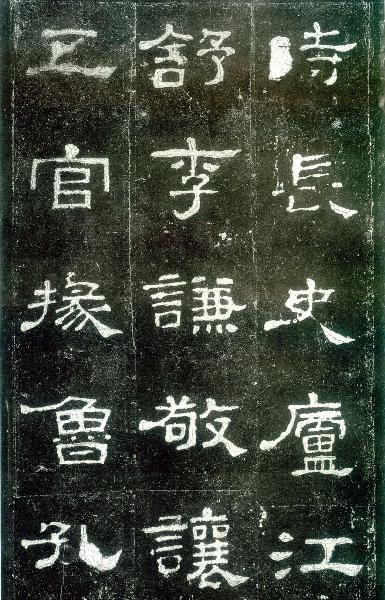 時長史廬江
舒李謙敬讓
五官掾魯孔